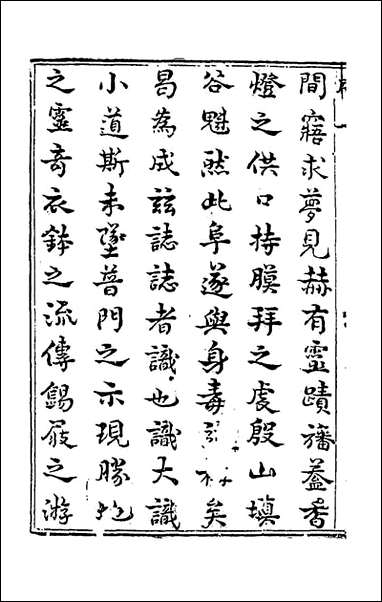 間寤求夢見赫有靈蹟旛蓋香
燈之供口持膜拜之虔殷山塡
谷魁然此阜遂與身毒 矣
曷爲成玆誌誌者識也識大識
小道斯未墜普門之示現勝地
之靈奇衣鉢之流傳錫屐之游